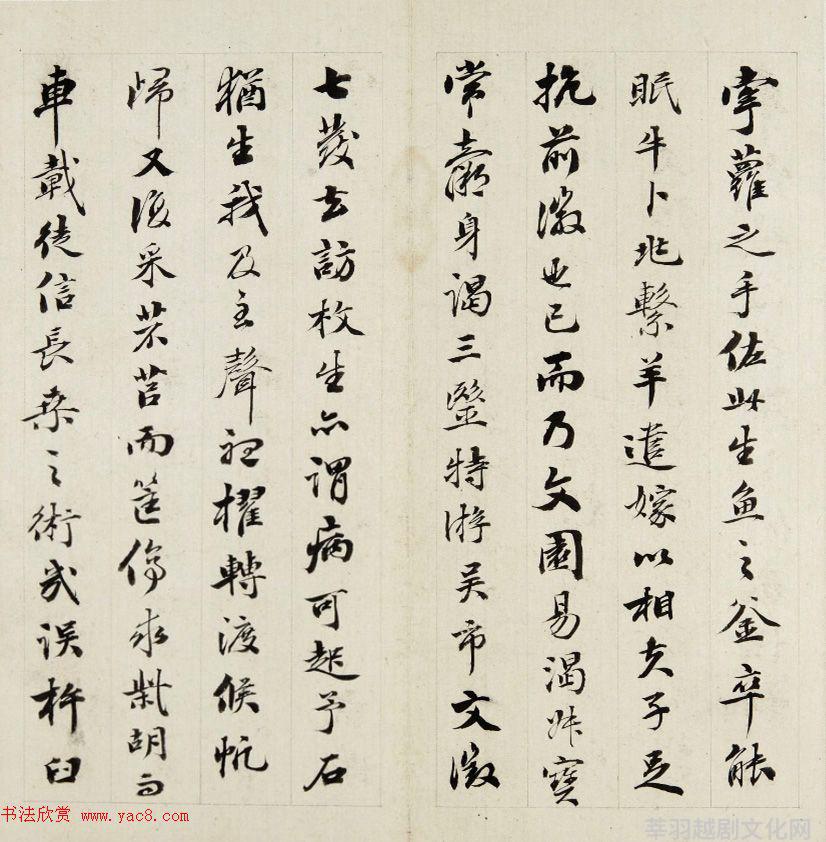 掌蘿之手佐此生魚之釜卒能
眠牛卜兆繫羊遣嫁以相夫子足
抗前徽也已而乃文園易渴姊寶
常 身謁三醫特游吳市文徵
七發去訪枚生亦謂病可起予石
猶生我及玉聲 櫂轉渡候帆
歸又復采芣苢而筐傷求 胡而
車載徒信長桑之術或誤杵臼
书法欣赏 www.yac8.com
莘羽越剧文化网